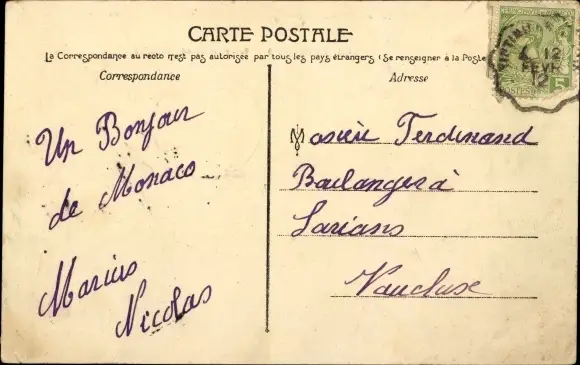 CARTE POSTALE
La Correspondance au recto n'est pas autorisée par tous les pays étrangers (Se renseigner à la Poste
Correspondance
Adresse
Un Bonjour
de Monaco
Marius
Nicolas
Mosieu Ferdinand
Boulanger à
Sarians
Vaucluse
12
FEVR
12
5